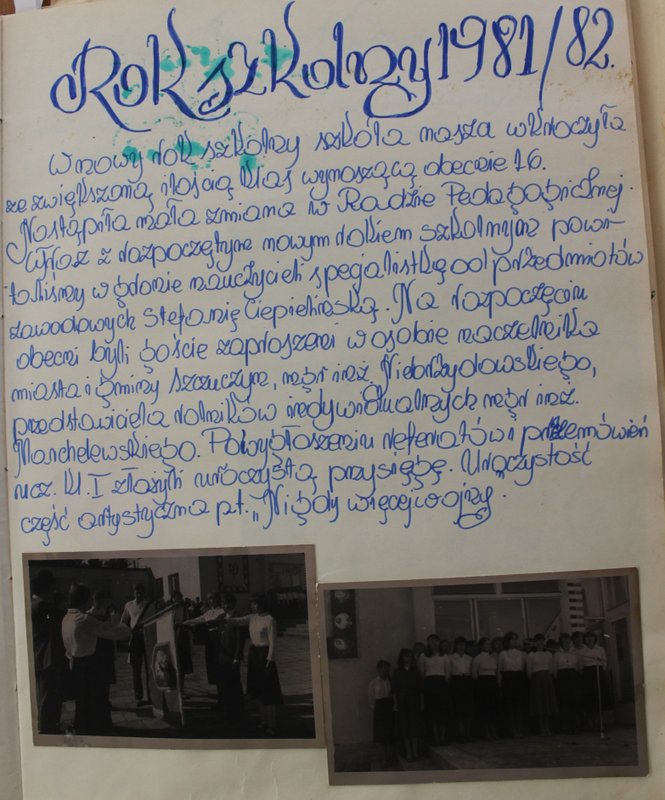 Rok szkolny 1981/82.
W nowy rok szkolny szkoła nasza wkroczyła
ze zwiększoną ilością klas wynoszącą obecnie 16.
Nastąpiła mała zmiana w Radzie Pedagogicznej.
Wraz z rozpoczętym nowym rokiem szkolnym powi-
taliśmy w gronie nauczycieli specjalistkę od przedmiotów
zawodowych Stefanię Ciepielińską. Na rozpoczęciu
obecni byli goście zaproszeni w osobie naczelnika
miasta i gminy Szczuczyn, mgr inż. Niebrzydowskiego,
przedstawiciela rolników indywidualnych mgr inż.
Marchelewskiego. Po wygłoszeniu referatów i przemówień
ucz. kl. I złożyli uroczystą przysięgę. Uroczystość
część artystyczna pt. „Nigdy więcej wojny".